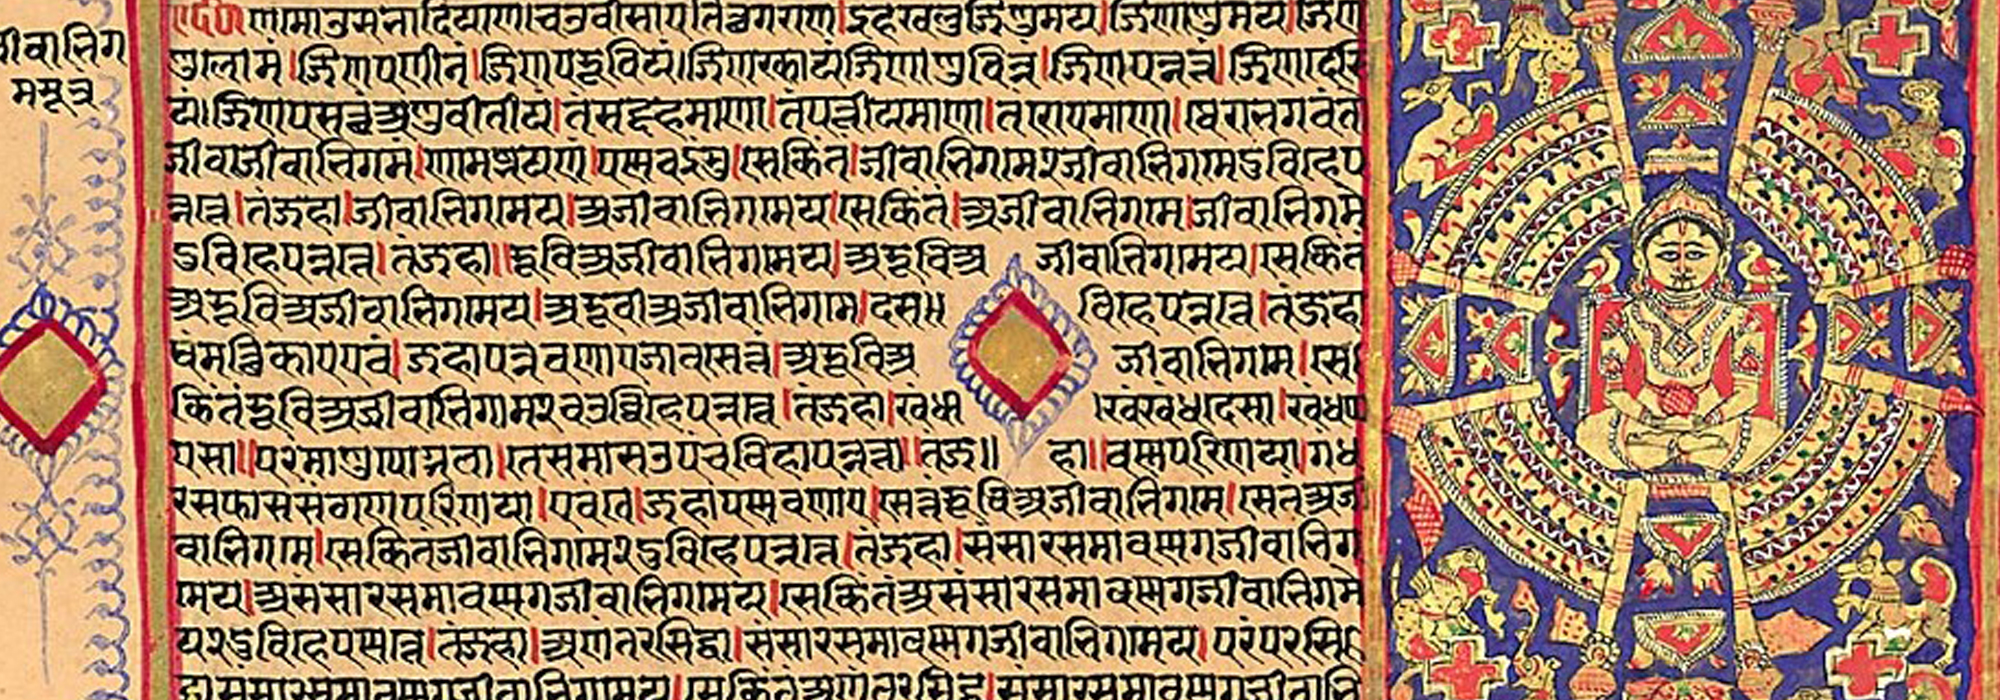 जीवाभिग
मसूत्र
णमो उसभादियाणं चउवीसाए तित्थगराणं। इह खलु जिणमयं। जिणाणुमयं। जिण
णुलोमं। जिणपणीतं। जिणपरूवियं। जिणक्खायं जिणाणुचिन्नं। जिणपन्नत्तं। जिणदेसि
यं। जिणपसत्थं अणुवीतीयं। तं सद्दहमाणा। तं पत्तीयमाणा। तं रोएमाणा। थेरा भगवंत
जीवाजीवाभिगमं। णामज्झयणं। पण्णवइंसु। से किंतं। जीवाभिगमे २ जीवाभिगमे दुविहे प
न्नत्ते। तंजहा। जीवाभिगमे य। अजीवाभिगमे य। से किंतं। अजीवाभिगमे। जीवाभिगमे
दुविहे पन्नत्ते। तंजहा॥ रूविअजीवाभिगमे य। अरूविअ जीवाभिगमे य। से किंतं
अरूविअजीवाभिगमे य। अरूवीअजीवाभिगमे। दस॥ विहे पन्नत्ते। तंजहा
धमत्थिकाए एवं। जहा पन्नवणाए जाव सेत्तं। अरूविअ जीवाभिगमे। से
किंतं रूविअजीवाभिगमे २ चउव्विहे पन्नत्ते। तंजहा। खंधा। खंधदेसा। खंधप
एसा॥ परमाणुपोग्गला। ते समासउ पंचविहा पन्नत्ता॥ तंज॥ हा॥ वण्णपरिणया। गंध
रसफाससंठाणपरिणया। एवं ते। जहा पण्णवणाए। सेत्तं रूविअजीवाभिगमे। सेतं अजी
वाभिगमे। से किंतं जीवाभिगमे २ दुविहे पन्नत्ते। तंजहा। संसारसमावण्णगजीवाभिग
मे य। असंसारसमावण्णगजीवाभिगमे य। से किंतं असंसारसमावण्णगजीवाभिगमे
य २ दुविहे पण्णत्ते। तंजहा। अणंतरसिद्धा। संसारसमावण्णगजीवाभिगमे य। परंपरसि